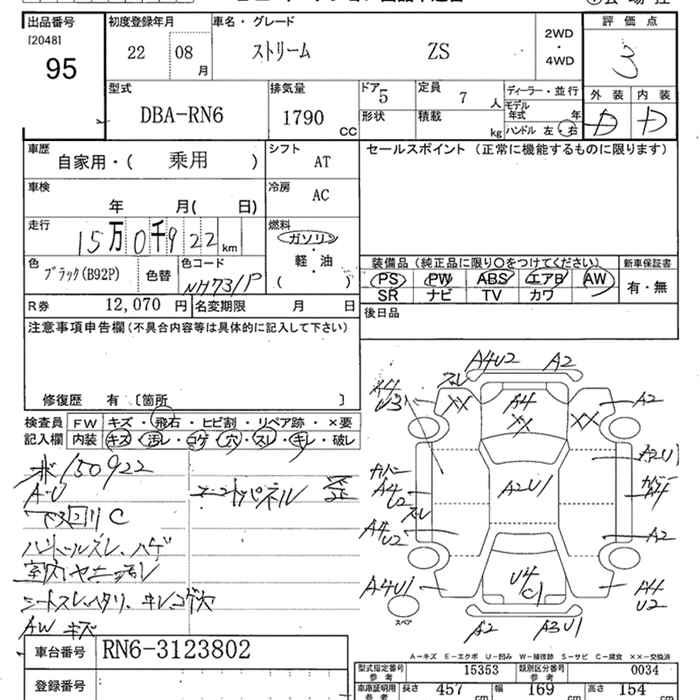 出品番号 初度登録年月 車名・グレード 評価点
[2048] 95 22 08 月 ストリーム ZS 2WD・4WD 3
型式 排気量 ドア 5 定員 7 人 ディーラー・並行 外装 内装
DBA-RN6 1790 CC 形状 積載 kg モデル年式 年 ハンドル 左・右 D D
車歴 自家用・( 乗用 ) シフト AT セールスポイント (正常に機能するものに限ります)
車検 年 月( 日) 冷房 AC
走行 15万0千922 km 燃料 ガソリン・軽・油 ( )
色 ブラック(B92P) 色替 色コード NH731P
装備品 (純正品に限り○をつけてください) 新車保証書
PS PW ABS エアB AW 有・無
SR ナビ TV カワ
R券 12,070 円 名変期限 月 日 後日品
注意事項申告欄(不具合内容等は具体的に記入して下さい)
修復歴 有 〔箇所 〕
検査員記入欄 FW キズ・飛石・ヒビ割・リペア跡・×要
内装 キズ・汚レ・コゲ・穴・スレ・キレ・破レ
150922
A・U
下回りC
ハンドルスレ、ハゲ
シートスレ、ヘタリ、キレ、コゲ穴
AWキズ
A4U2 A2
A4 U3 ズレ XX A4 XX XX A2
A2U1
カバー A4 U2 A2U1 カバー A4
ズレ
A4 U2 A2
A4U1 U4 C1 A4 U2
スペア A2 A3U1
A-キズ E-エクボ U-凹み W-補修跡 S-サビ C-腐食 ××-交換済
車台番号 RN6-3123802
登録番号
型式指定番号 参考 15353 類別区分番号 参考 0034
車庫証明用 参考 長さ 457 cm 幅 169 cm 高さ 154 cm